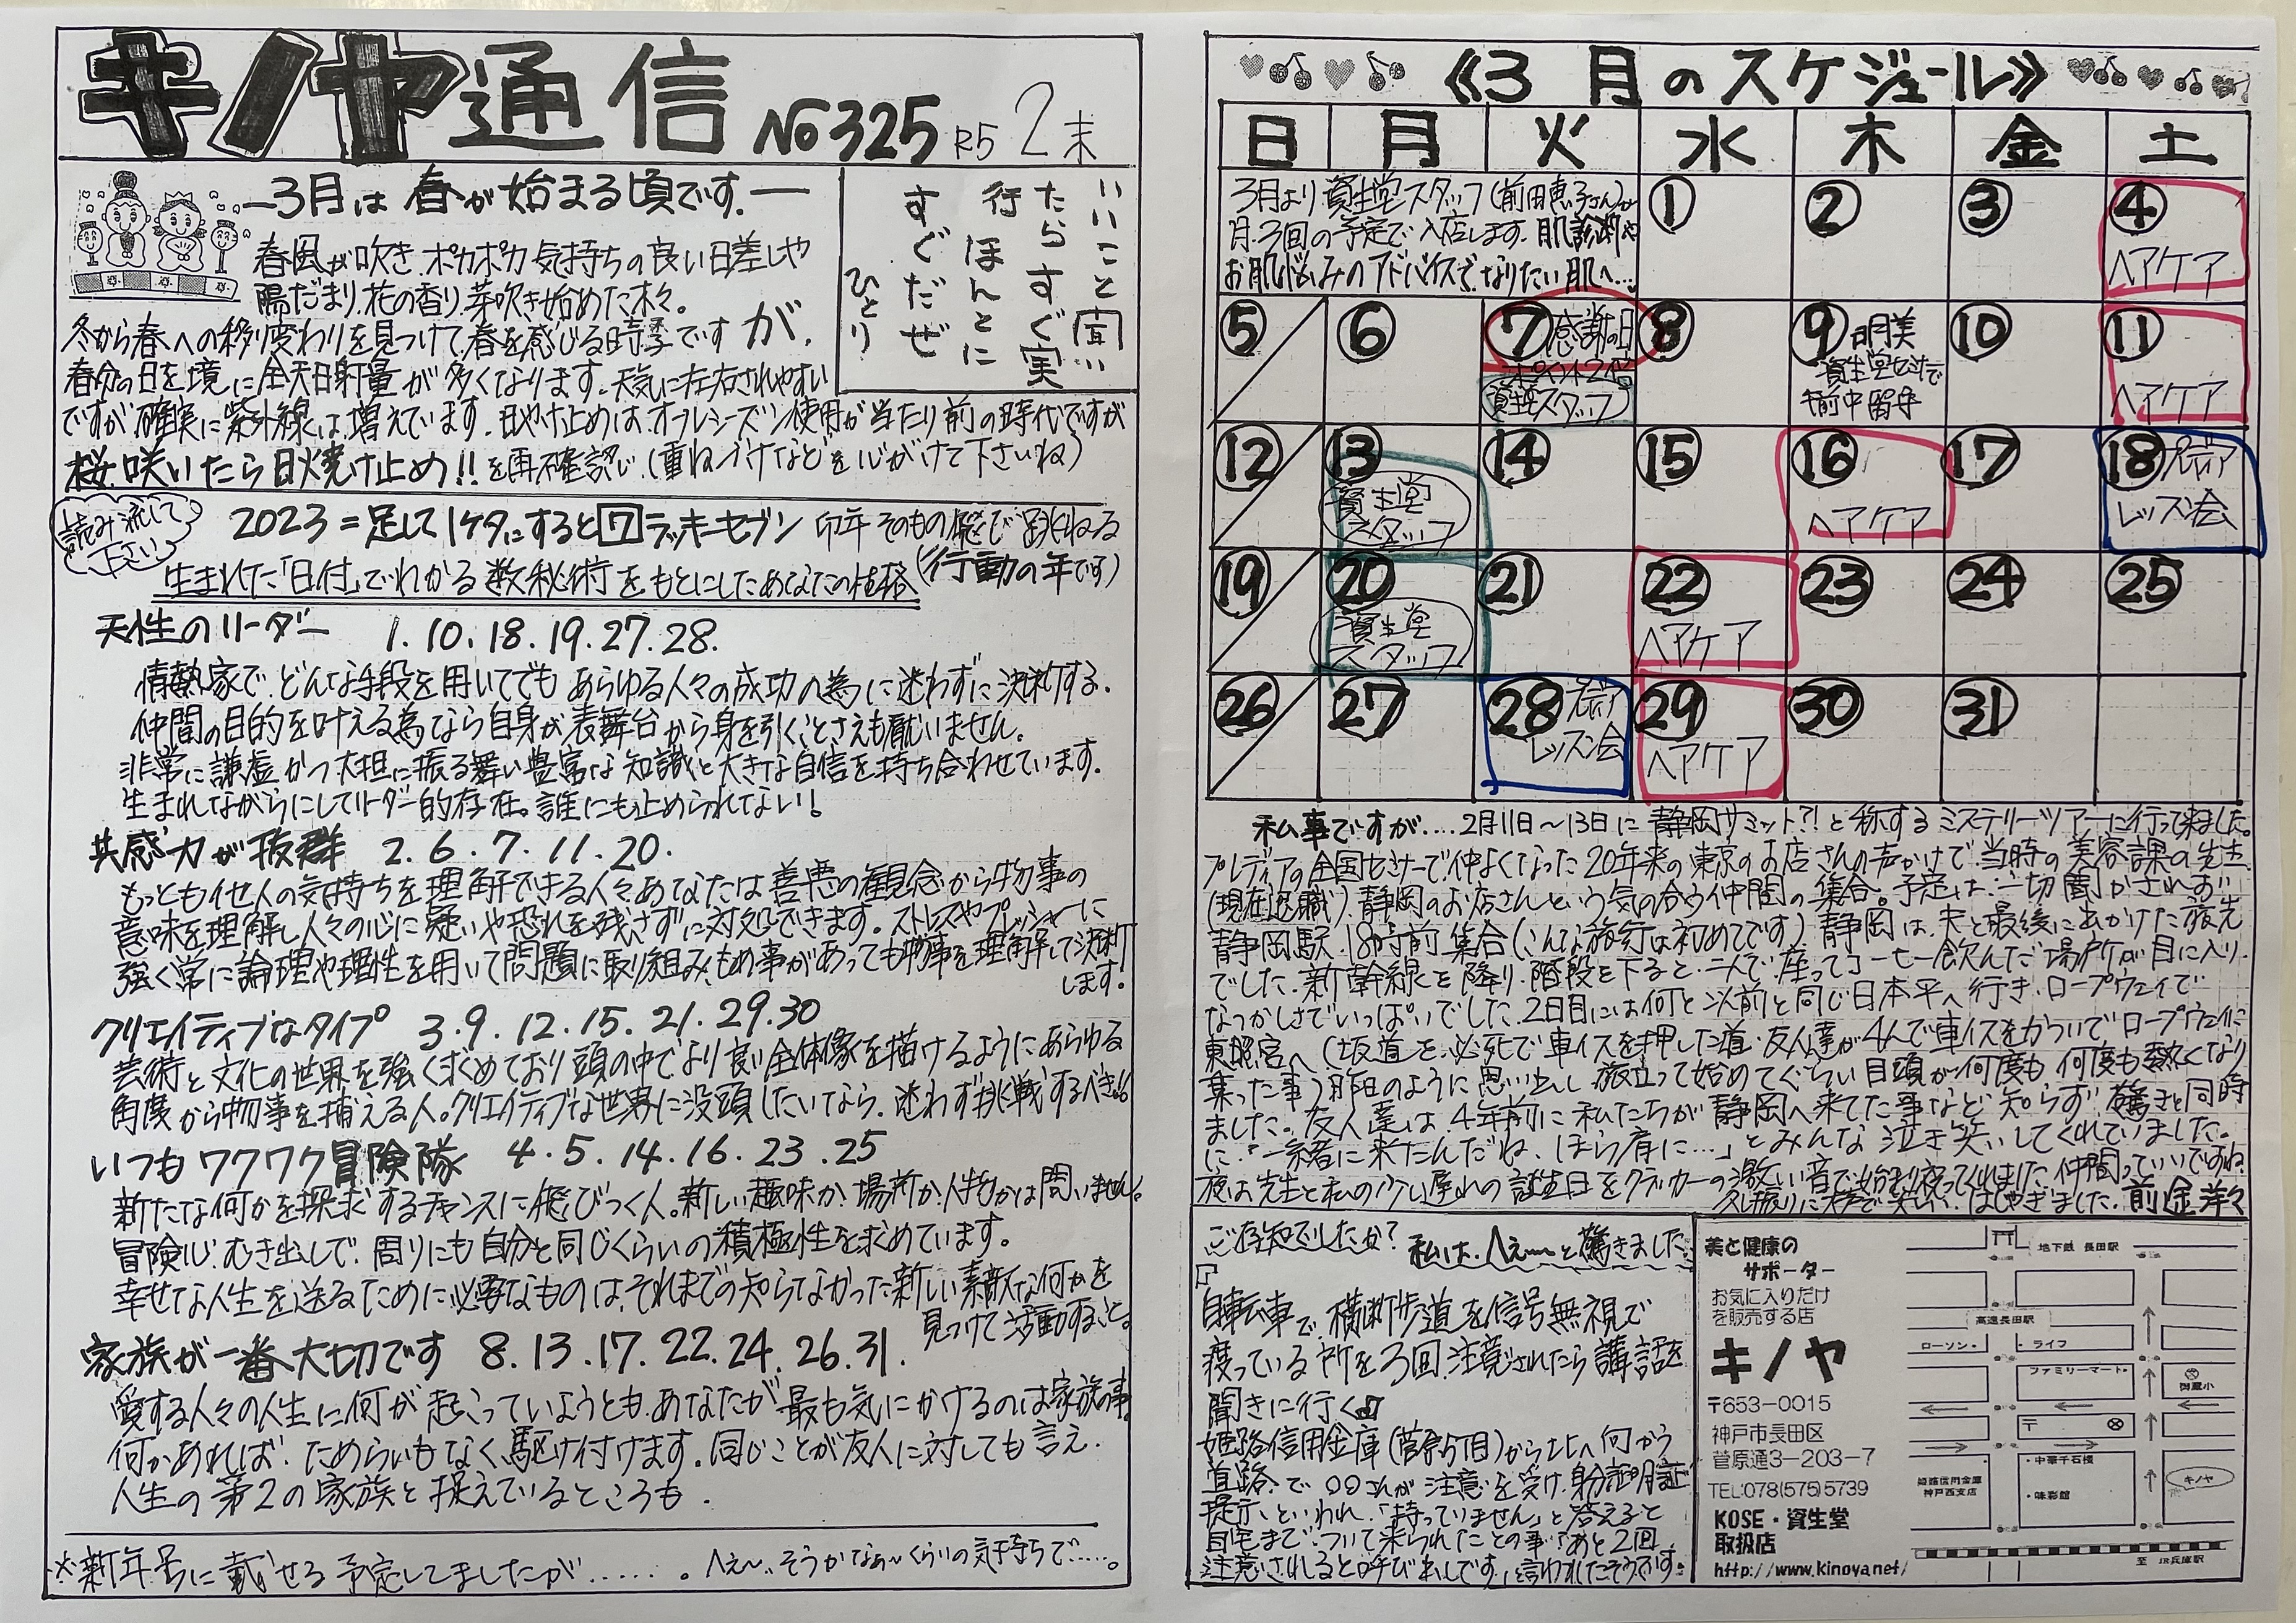 キノヤ通信 No325 R5 2末
いいこと聞い
たらすぐ実
行 ほんとに
すぐだぜ
ひとり
―3月は春が始まる頃です.―
春風が吹き、ポカポカ気持ちの良い日差しや
陽だまり、花の香り、芽吹き始めた木々。
冬から春への移り変わりを見つけて、春を感じる時季ですが、
春分の日を境に全天日射量が多くなります。天気に左右されやすい
ですが確実に紫外線は増えています。日やけ止めは、オフレシーズン使用が当たり前の時代ですが
桜、咲いたら日焼け止め!!を再確認し、(重ねづけなどを心がけて下さいね)
読み流して
下さい
2023=足して1ケタにすると7ラッキーセブン 卯年そのもの飛び跳ねる
(行動の年です)
生まれた「日付」でわかる数秘術をもとにしたあなたの性格
天性のリーダー 1.10.18.19.27.28.
情熱家で、どんな手段を用いてでもあらゆる人々の成功の為に迷わずに決断する.
仲間の目的を叶える為なら自身が表舞台から身を引くことさえも厭いません。
非常に謙虚かつ大担に振る舞い豊富な知識と大きな自信を持ち合わせています.
生まれながらにしてリーダー的存在。誰にも止められない!
共感力が抜群 2.6.7.11.20.
もっとも他人の気持ちを理解できる人々あなたは善悪の観念から物事の
意味を理解し人々の心に疑いや恐れを残さずに対処できます。ストレスやプレッシャーに
強く常に論理や理性を用いて問題に取り組み、もめ事があっても物事を理解して決断
します!
クリエイティブなタイプ 3.9.12.15.21.29.30
芸術と文化の世界を強く求めており頭の中でより良い全体像を描けるようにあらゆる
角度から物事を捕える人。クリエイティブな世界に没頭したいなら、迷わず挑戦するべき
いつもワクワク冒険隊 4.5.14.16.23.25
新たな何かを探求するチャンスに飛びつく人。新しい趣味か、場所か、人物かは問いません。
冒険心むき出しで、周りにも自分と同じくらいの積極性を求めています。
幸せな人生を送るために必要なものは、それまでの知らなかった新しい素敵な何かを
見つけて活動すること。
家族が一番大切です 8.13.17.22.24.26.31.
愛する人々の人生に何が起こっていようとも、あなたが最も気にかけるのは家族の事
何かあれば、ためらいもなく駆け付けます。同じことが友人に対しても言え.
人生の第2の家族と捉えているところも.
※新年号に載せる予定してましたが……。へえ~、そうかなぁ~くらいの気持ちで……。
《3月のスケジュール》
日 月 火 水 木 金 土
3月より資生堂スタッフ(前田恵子さん)が
月.3回の予定で入店します.肌診断や
お肌悩みのアドバイスで、なりたい肌へ…
1 2 3 4 ヘアケア
5 6 7 感謝の日 ポイント2倍 資生堂スタッフ 8 9 明美 資生堂セミナで 午前中留守 10 11 ヘアケア
12 13 資生堂スタッフ 14 15 16 ヘアケア 17 18 プレディア レッスン会
19 20 資生堂スタッフ 21 22 ヘアケア 23 24 25
26 27 28 プレディア レッスン会 29 ヘアケア 30 31
私事ですが....2月11日~13日に静岡サミット?!と称するミステリーツアーに行って来ました。
プレディアの全国セミナーで仲よくなった20年来の東京のお店さんの声かけで、当時の美容課の先生
(現在退職)、静岡のお店さんという気の合う仲間の集合。予定は一切聞かされず
静岡駅.18時前集合(こんな旅行は初めてです)静岡は、夫と最後に出かけた旅先
でした.新幹線を降り、階段を下ると、二人で座ってコーヒー飲んだ場所が目に入り、
なつかしさでいっぱいでした.2日目には何と以前と同じ日本平へ行き、ロープウェイで
東照宮へ(坂道を必死で車イスを押した道、友人達が4人で車イスをかついでロープウェイに
乗った事)昨日のように思い出し旅立って始めてぐらい目頭が何度も何度も熱くなり
ました。友人達は4年前に私たちが静岡へ来てた事など知らず、驚きと同時
に、「一緒に来たんだね、ほら肩に…」とみんな泣き笑いしてくれていました。
夜は先生と私の少し遅れの誕生日をクラッカーの激しい音で始まり祝ってくれました。仲間っていいですね。
久し振りに大声で笑い、はしゃぎました. 前金洋々
ご存知でしたか? 私は、へえ~~と驚きました.
自転車で横断歩道を信号無視で
渡っている所を3回、注意されたら講話を
聞きに行く
姫路信用金庫(菅原5丁目)から北へ向かう
道路で○○さんが注意を受け、身分証明証
提示といわれ、「持っていません」と答えると
自宅までついて来られたとの事、「あと2回、
注意されると呼び出しです。」と言われたそうです。
美と健康の
サポーター
お気に入りだけ
を販売する店
キノヤ
〒653-0015
神戸市長田区
菅原通3-203-7
TEL:078(575)5739
KOSE・資生堂
取扱店
http://www.kinoya.net/
地下鉄 長田駅
高速長田駅
ローソン・
・ライフ
ファミリーマート・
御蔵小
・中華千石楼
姫路信用金庫
神戸西支店
・味彩館
キノヤ
至 JR兵庫駅